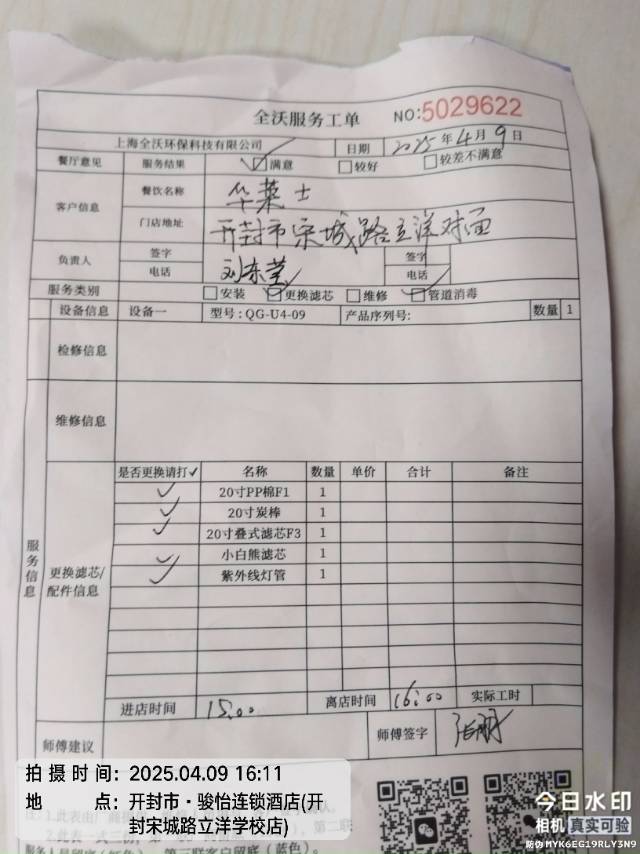 全沃服务工单 NO:5029622
上海全沃环保科技有限公司 日期 2025年4月9日
餐厅意见 服务结果 ☑满意 □较好 □较差不满意
客户信息 餐饮名称 华莱士
门店地址 开封市宋城路立洋对面
负责人 签字 签字
电话 电话
服务类别 □安装 ☑更换滤芯 □维修 ☑管道消毒
设备信息 设备一 型号:QG-U4-09 产品序列号: 数量 1
检修信息
服务信息
维修信息
更换滤芯/配件信息
是否更换请打✓ 名称 数量 单价 合计 备注
✓ 20寸PP棉F1 1
✓ 20寸炭棒 1
✓ 20寸叠式滤芯F3 1
✓ 小白熊滤芯 1
✓ 紫外线灯管 1
进店时间 15:00 离店时间 16:00 实际工时
师傅建议 师傅签字
拍摄时间: 2025.04.09 16:11
地点: 开封市·骏怡连锁酒店(开
封宋城路立洋学校店)
今日水印
相机 真实可验
防伪 MYK6EG19RLY3N9